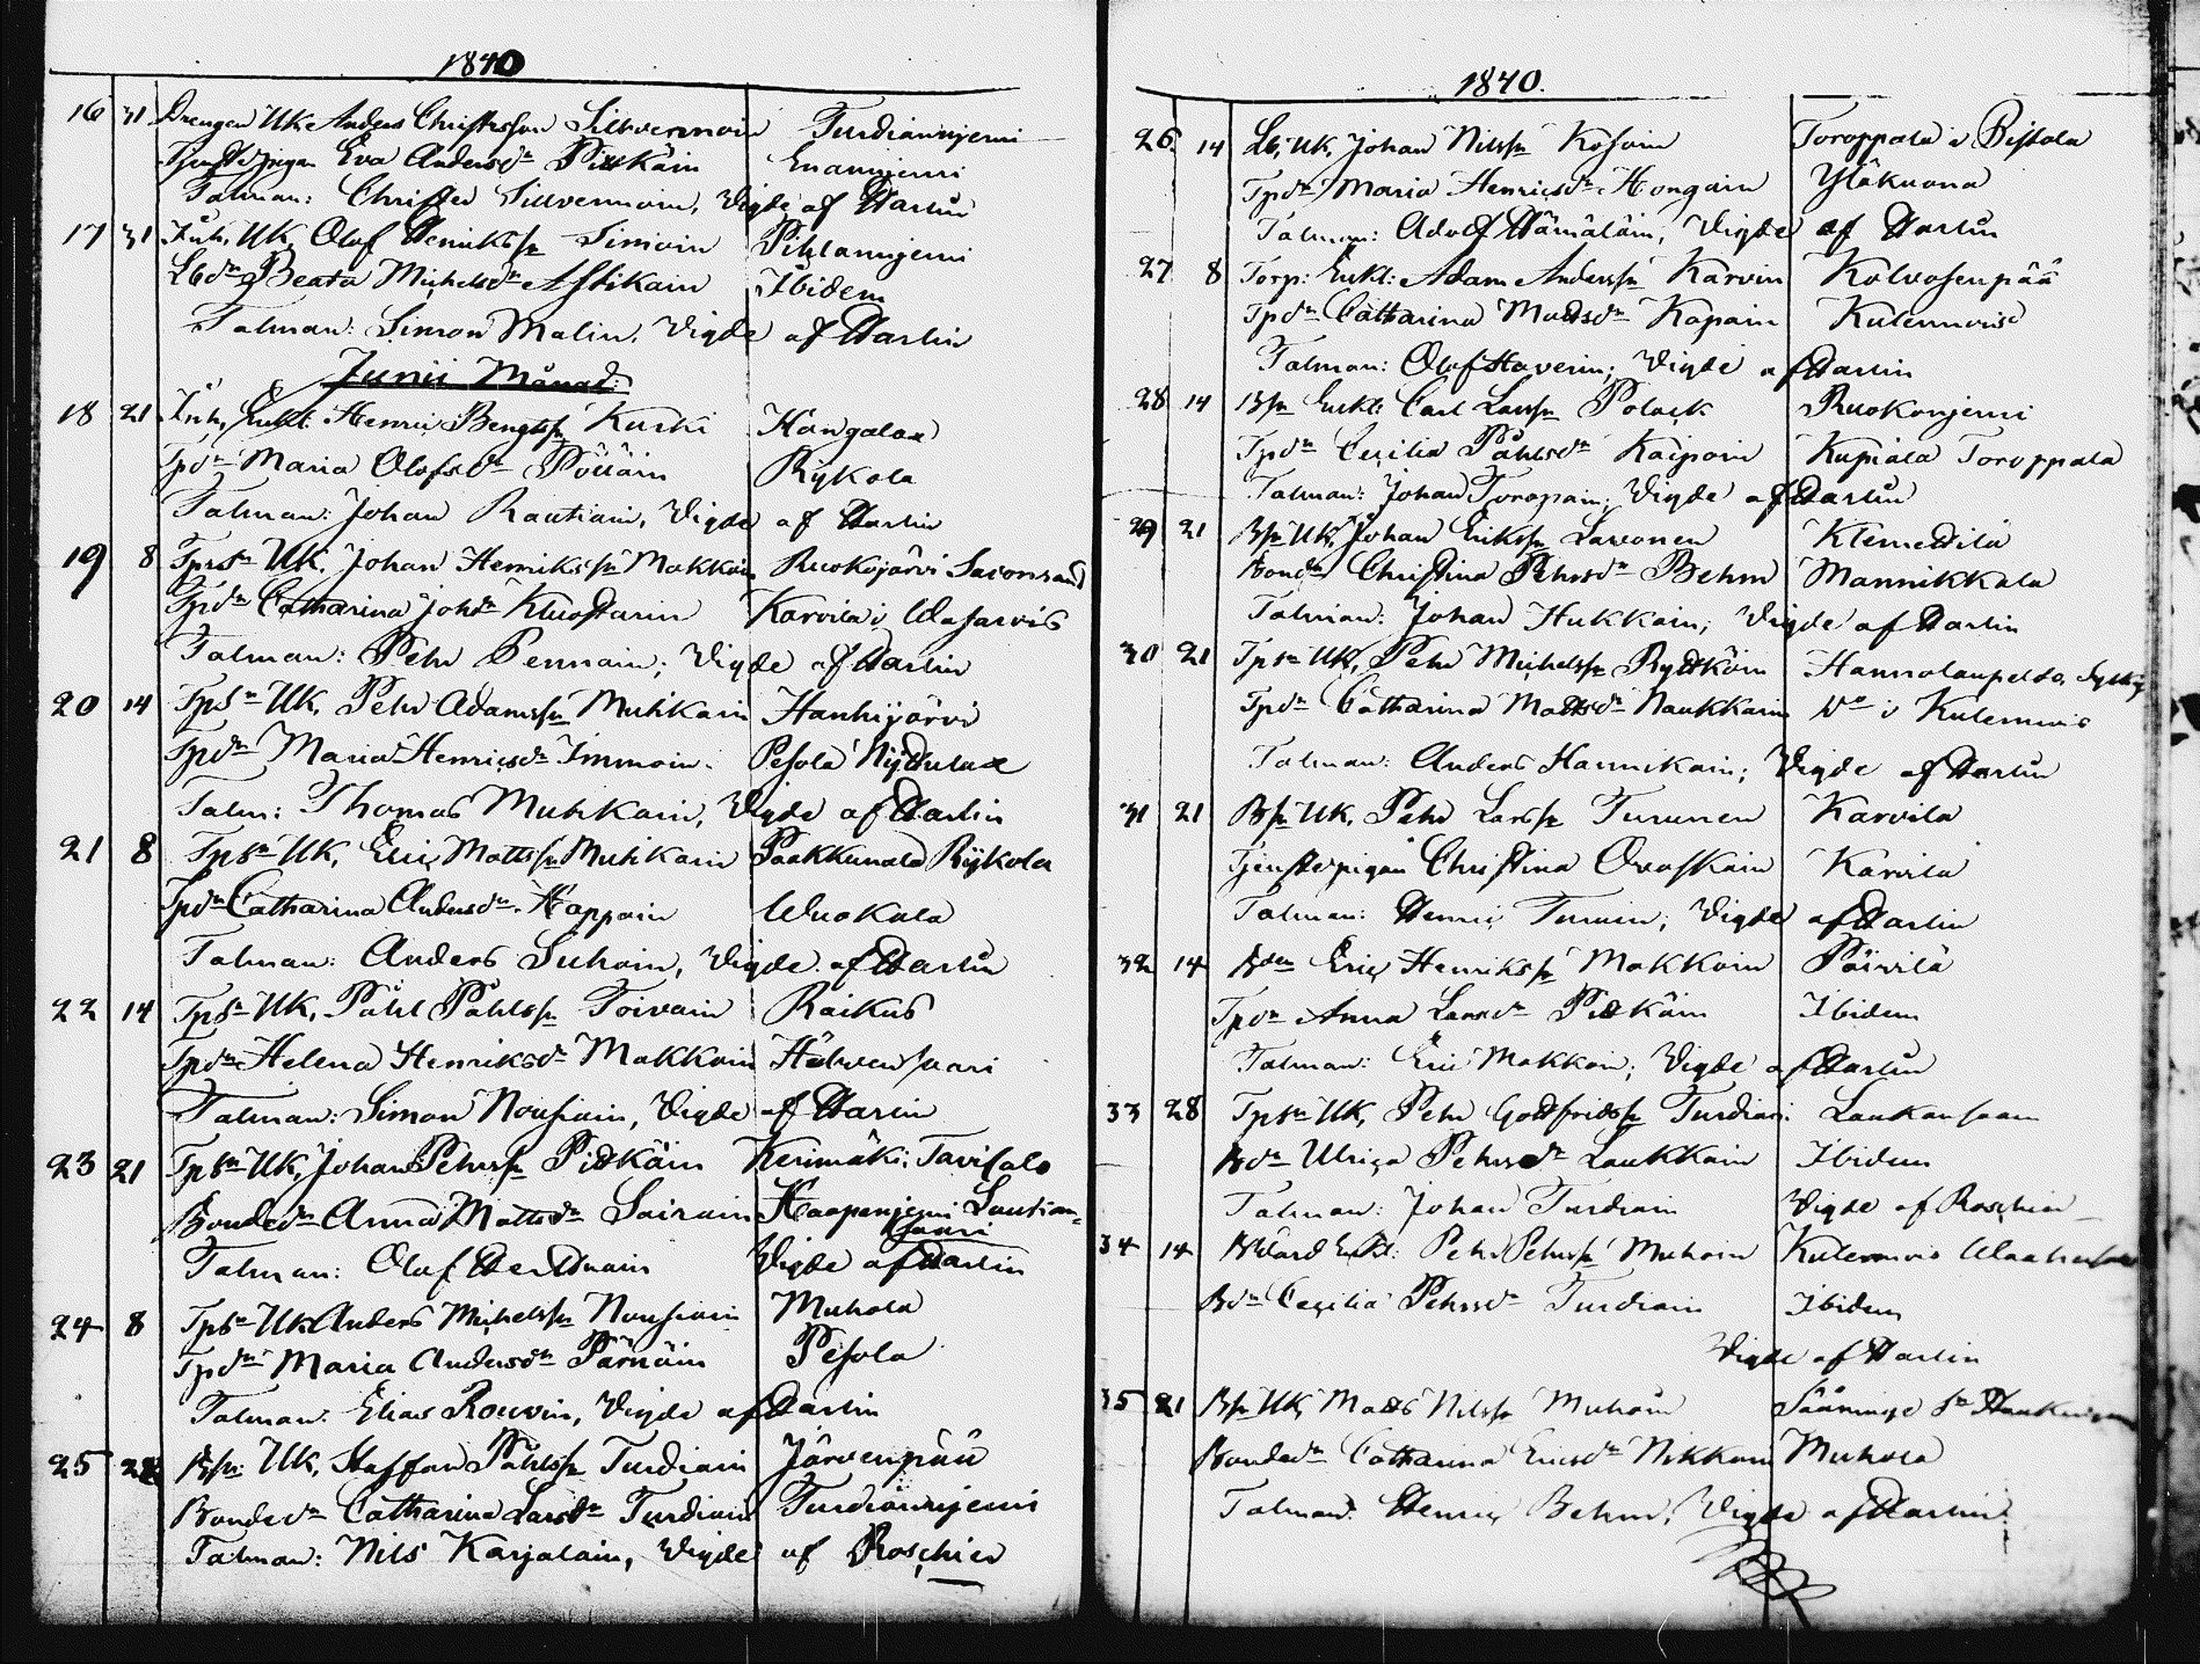 1840
16 31 Drengen UK. Anders Christersson Silvennoin Turdianniemi
Tjenstepigan Eva Andersdr Pitkäin Enanniemi
Talman: Christer Silvennoin, Vigde af Hartin
17 31 Inh. UK, Olof Henrikssn Simoin Pihlanniemi
Lbdn Beata Michelsdr Astikain Ibidem
Talman: Simon Malin, Vigde af Hartin
Junii Månad:
18 21 Inh, Enkl: Henric Bengtssn Kurki Kangalax
Tpdn Maria Olofsdr Pöllain Rykola
Talman: Johan Rautiain, Vigde af Hartin
19 8 Tpsn UK. Johan Henrikssn Makkoin Ruokojärvi Savonrand
Tpdn Catharina Johdr Kluostarin Karvila i
Talman: Pehr Pennain; Vigde af Hartin
20 14 Tpsn UK, Pehr Adamssn Muhkain Hanhijärvi
Tpdn Maria Henricsdr Immoin. Pesola Nÿttulax
Talm: Thomas Muhkain, Vigde af Hartin
21 8 Tpsn UK, Eric Mattssn Muhkain Paakkunala Rÿkola
Tpdn Catharina Andersdr Happoin Wuokala
Talman: Anders Suhoin, Vigde af Hartin
22 14 Tpsn UK, Påhl Påhlssn Toivain Raikus
Tpdn Helena Henriksdr Makkoin saari
Talman: Simon Nousiain, Vigde af Hartin
23 21 Tpsn UK, Johan Pehrssn Pitkäin Kerimäki: Tavisalo
Bondedn Anna Mattsdr Sairain Haapaniemi Lautian-
saari
Talman: Olof Vigde af Hartin
24 8 Tpsn UK Anders Michelssn Nousiain Muhola
Tpdn Maria Andersdr Pärnäin Pesola
Talman: Elias Rouvin, Vigde af Hartin
25 28 Bsn. UK, Staffan Påhlssn Turdiain Järvenpää
Bondedn Catharina Larsdr Turdiain Turdianniemi
Talman: Nils Karjalain, Vigde af Roschier
1840.
26. 14 Lb, UK, Johan Nilssn Kosoin Toroppala i Pistola
Tpdn Maria Henricsdr Hongain Yläkuona
Talman: Adolf Hämäläin, Vigde af Hartin
27 8 Torp: Enkl: Adam Anderssn Karvin Kolvosenpää
Tpdn Catharina Mattsdr Kapain Kulennois
Talman: Olof Haverin; Vigde af Hartin
28 14 Bsn Enkl: Carl Larssn Polack Ruokoniemi
Tpdn Cecilia Påhlsdr Kaipain Kupiala Toroppala
Talman: Johan Toropain; Vigde af Hartin
29 21 Bsn UK, Johan Erikssn Lavonen Klemettilä
Bondn Christina Pehrsdr Behm Mannikkala
Talman: Johan Hukkain; Vigde af Hartin
30 21 Tpsn UK, Pehr Michelssn Ryttköin Hannolanpelto,
Tpdn Catharina Mattsdr Naukkarin i Kulennois
Talman: Anders Hannikain; Vigde af Hartin
31 21 Bsn UK. Pehr Larssn Turunen Karvila
Tjenstepigan Christina Ovaskain Karvila
Talman: Henric Turuin; Vigde af Hartin
32 14 Bden Eric Henrikssn Makkoin Päivilä
Tpdn Anna Larsdr Pitkäin Ibidem
Talman: Eric Makkoin; Vigde af Hartin
33 28 Tpsn UK, Pehr Gottfridssn Turdiain: Laukansaari
Bdn Ulrica Pehrsdr Laukkain Ibidem
Talman: Johan Turdiain Vigde af Roschier
34 14 Pehr Pehrssn Muhoin Kulennois
Bdn Cecilia Pehrsdr Turdiain Ibidem
Vigde af Hartin
35 21 Bsn UK, Matts Nilssn Muhoin Sääminge
Bondedn Catharina Ericsdr Nikkain Muhola
Talman: Henric Behm, Vigde af Hartin